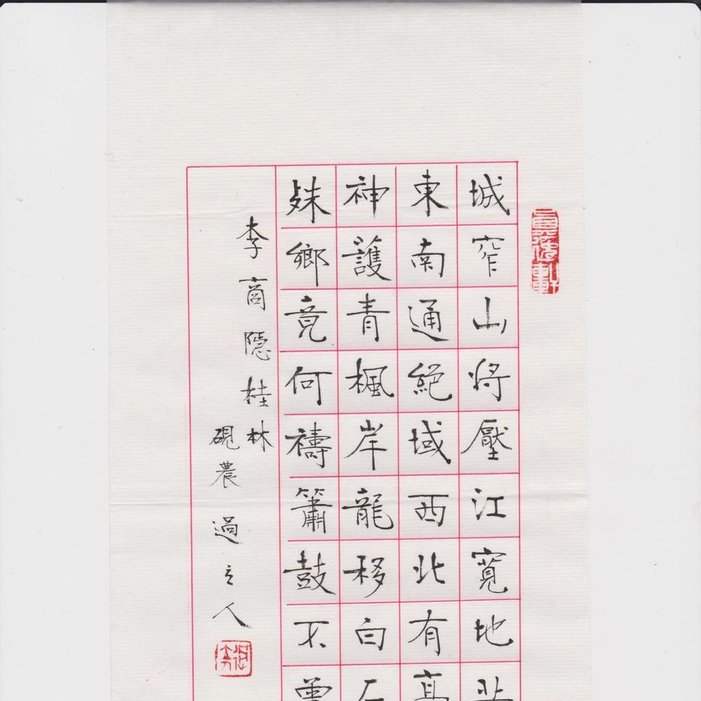 城窄山將壓江寬地
東南通絕域西北有高
神護青楓岸龍移白石
殊鄉竟何禱簫鼓不曾
李商隱桂林
硯農過立人